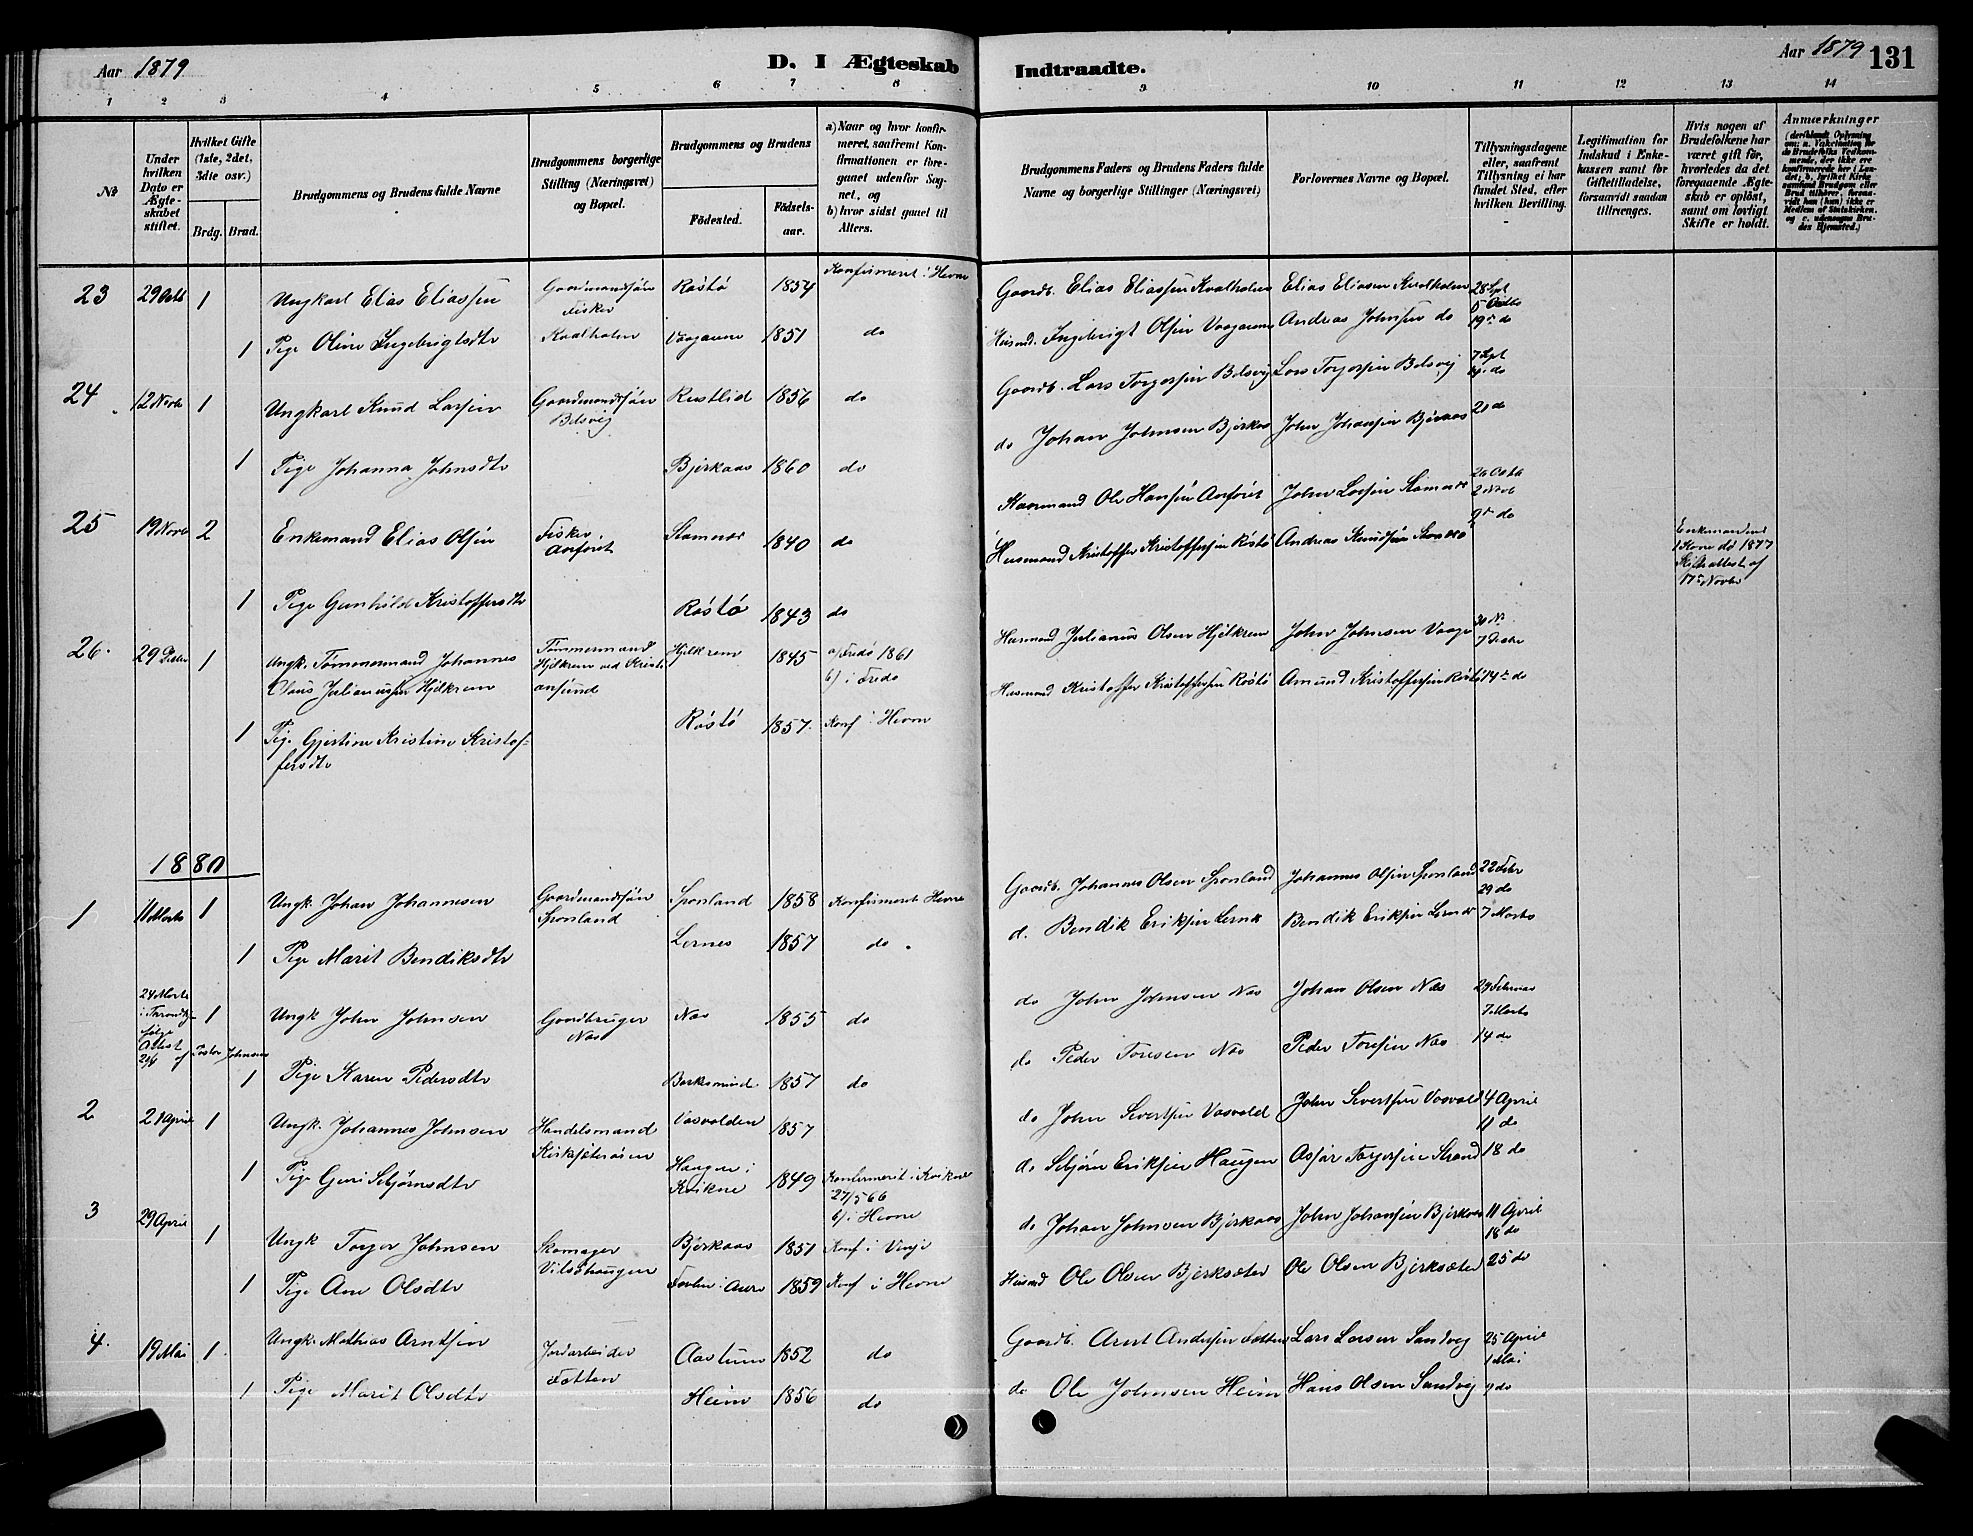 Aar 1879
D. I Ægteskab
Indtraadte.
Aar 1879
131
1 2 3 4 5 6 7 8
9 10 11 12 13 14
No
Under hvilken Dato er Ægteskabet stiftet.
Hvilket Gifte (1ste, 2det, 3die osv.)
Brdg. Brud.
Brudgommens og Brudens fulde Navne
Brudgommens borgerlige Stilling (Næringsvei) og Bopæl.
Brudgommens og Brudens
Födested.
Födselsaar.
a) Naar og hvor konfirmeret, saafremt Konfirmationen er foregaaet udenfor Sognet, og
b) hvor sidst gaaet til Alters.
Brudgommens Faders og Brudens Faders fulde Navne og borgerlige Stillinger (Næringsvei)
Forlovernes Navne og Bopæl.
Tillysningsdagene eller, saafremt Tillysning ei har fundet Sted, efter hvilken Bevilling.
Legitimation for Indskud i Enkekassen samt for Giftetilladelse, forsaavidt saadan tiltrænges.
Hvis nogen af Brudefolkene har været gift för, hvorledes da det foregaaende Ægteskab er oplöst, samt om lovligt Skifte er holdt.
Anmærkninger
23 29 Octb 1 Ungkarl Elias Eliassen Gaardmandssön Fisker Kvalholm Röstö 1854 Konfirmeret i Hevne
Gaardb. Elias Eliassen Kvalholm Elias Eliasen Kvalholm 28 Sept 5 Octb
1 Pige Oline Ingebrigtsdtr Vaagaune 1851 do
Husmd. Ingebrigt Olsen Vaagaune Andreas Johnsen do 19 do
24 12 Novb 1 Ungkarl Knud Larsen Gaardmandssön Belsvig Rustlid 1856 do
Gaardb. Lars Torgersen Belsvig Lars Torgersen Belsvig 7 Sept do
1 Pige Johanna Johnsdtr Bjerkaas 1860 do
do Johan Johnsen Bjerkaas John Johansen Bjerkaas do
25 19 Novb 2 Enkemand Elias Olsen Fisker Stamnes 1840 do
Ole Hansen John Larsen Stamnes 2 Novb 9 do
1 Pige Gunhild Kristoffersdtr Röstö 1843 do
Husmand Kristoffer Kristoffersen Röstö Andreas Knudsen
Enkemandens
1 Kone dö 1877
Skifteattest af
17 Novbr
26. 29 Decbr 1 Ungk. Tömmermand Johannes
Claus Julianussen Hjelkrem
Tömmermand
Hjelkrem ved Kristi
ansund
Hjelkrem 1845 a) Fredö 1861
b) i Fredö
Husmand Julianus Olsen Hjelkrem John Johnsen Vaage 30 No 7 Decbr
1 Pige Gjertine Kristine Kristof-
fersdtr
Röstö 1857. Konf i Hevne
Husmand Kristoffer Kristoffersen Röstö Amund Kristoffersen Röstö 14 do
1880
1 11 Marts 1 Ungk. Johan Johannesen Gaardmandssön Sponland Sponland 1858 Konfirmeret Hevne
Gaardb. Johannes Olsen Sponland Johannes Olsen Sponland 22 Febr 29 do
1 Pige Marit Bendiksdtr Lernes 1857 do
d. Bendik Eriksen Lernes Bendik Eriksen Lernes 7 Marts
24 Marts
1 Ungk John Johnsen Gaardbruger Næs Næs 1855 do
do John Johnsen Næs Johan Olsen Næs 29 Februar 7 Marts
Attest
1 Pige Karen Pedersdtr 1857 do
do Peder Toresen Næs Peder Toresen Næs 14 do
2 21 April 1 Ungk. Johannes Johnsen Handelsmand Kirksæterören Vasvolden 1857
do John Sivertsen Vasvold John Sivertsen Vasvold 4 April 11 do
1 Pige Guri Sebjörnsdtr Haugen i Kvikne 1849 Konfirmeret i Kvikne 27/5 66
b) i Hevne
do Sebjörn Eriksen Haugen Torgersen Strand 18 do
3 29 April 1 Ungk Torger Johnsen Skomager Bjerkaas 1851 Konf i Vinje
do Johan Johnsen Bjerkaas John Johansen Bjerkaas 11 April 18 do
1 Pige Ane Olsdtr i Aure 1859 Konf i Hevne
Husmd Ole Olsen Bjerksæter Ole Olsen Bjerksæter 25 do
4. 19 Mai 1 Ungk. Mathias Arntsen Jordarbeider Fætten Aastun 1852 do
Gaardb. Arnt Andersen Fætten Lars Larsen Sandvig 25 April 1 Mai
1 Pige Marit Olsdtr Heim 1856 do
do Ole Johnsen Heim Hans Olsen Sandvig 9 do